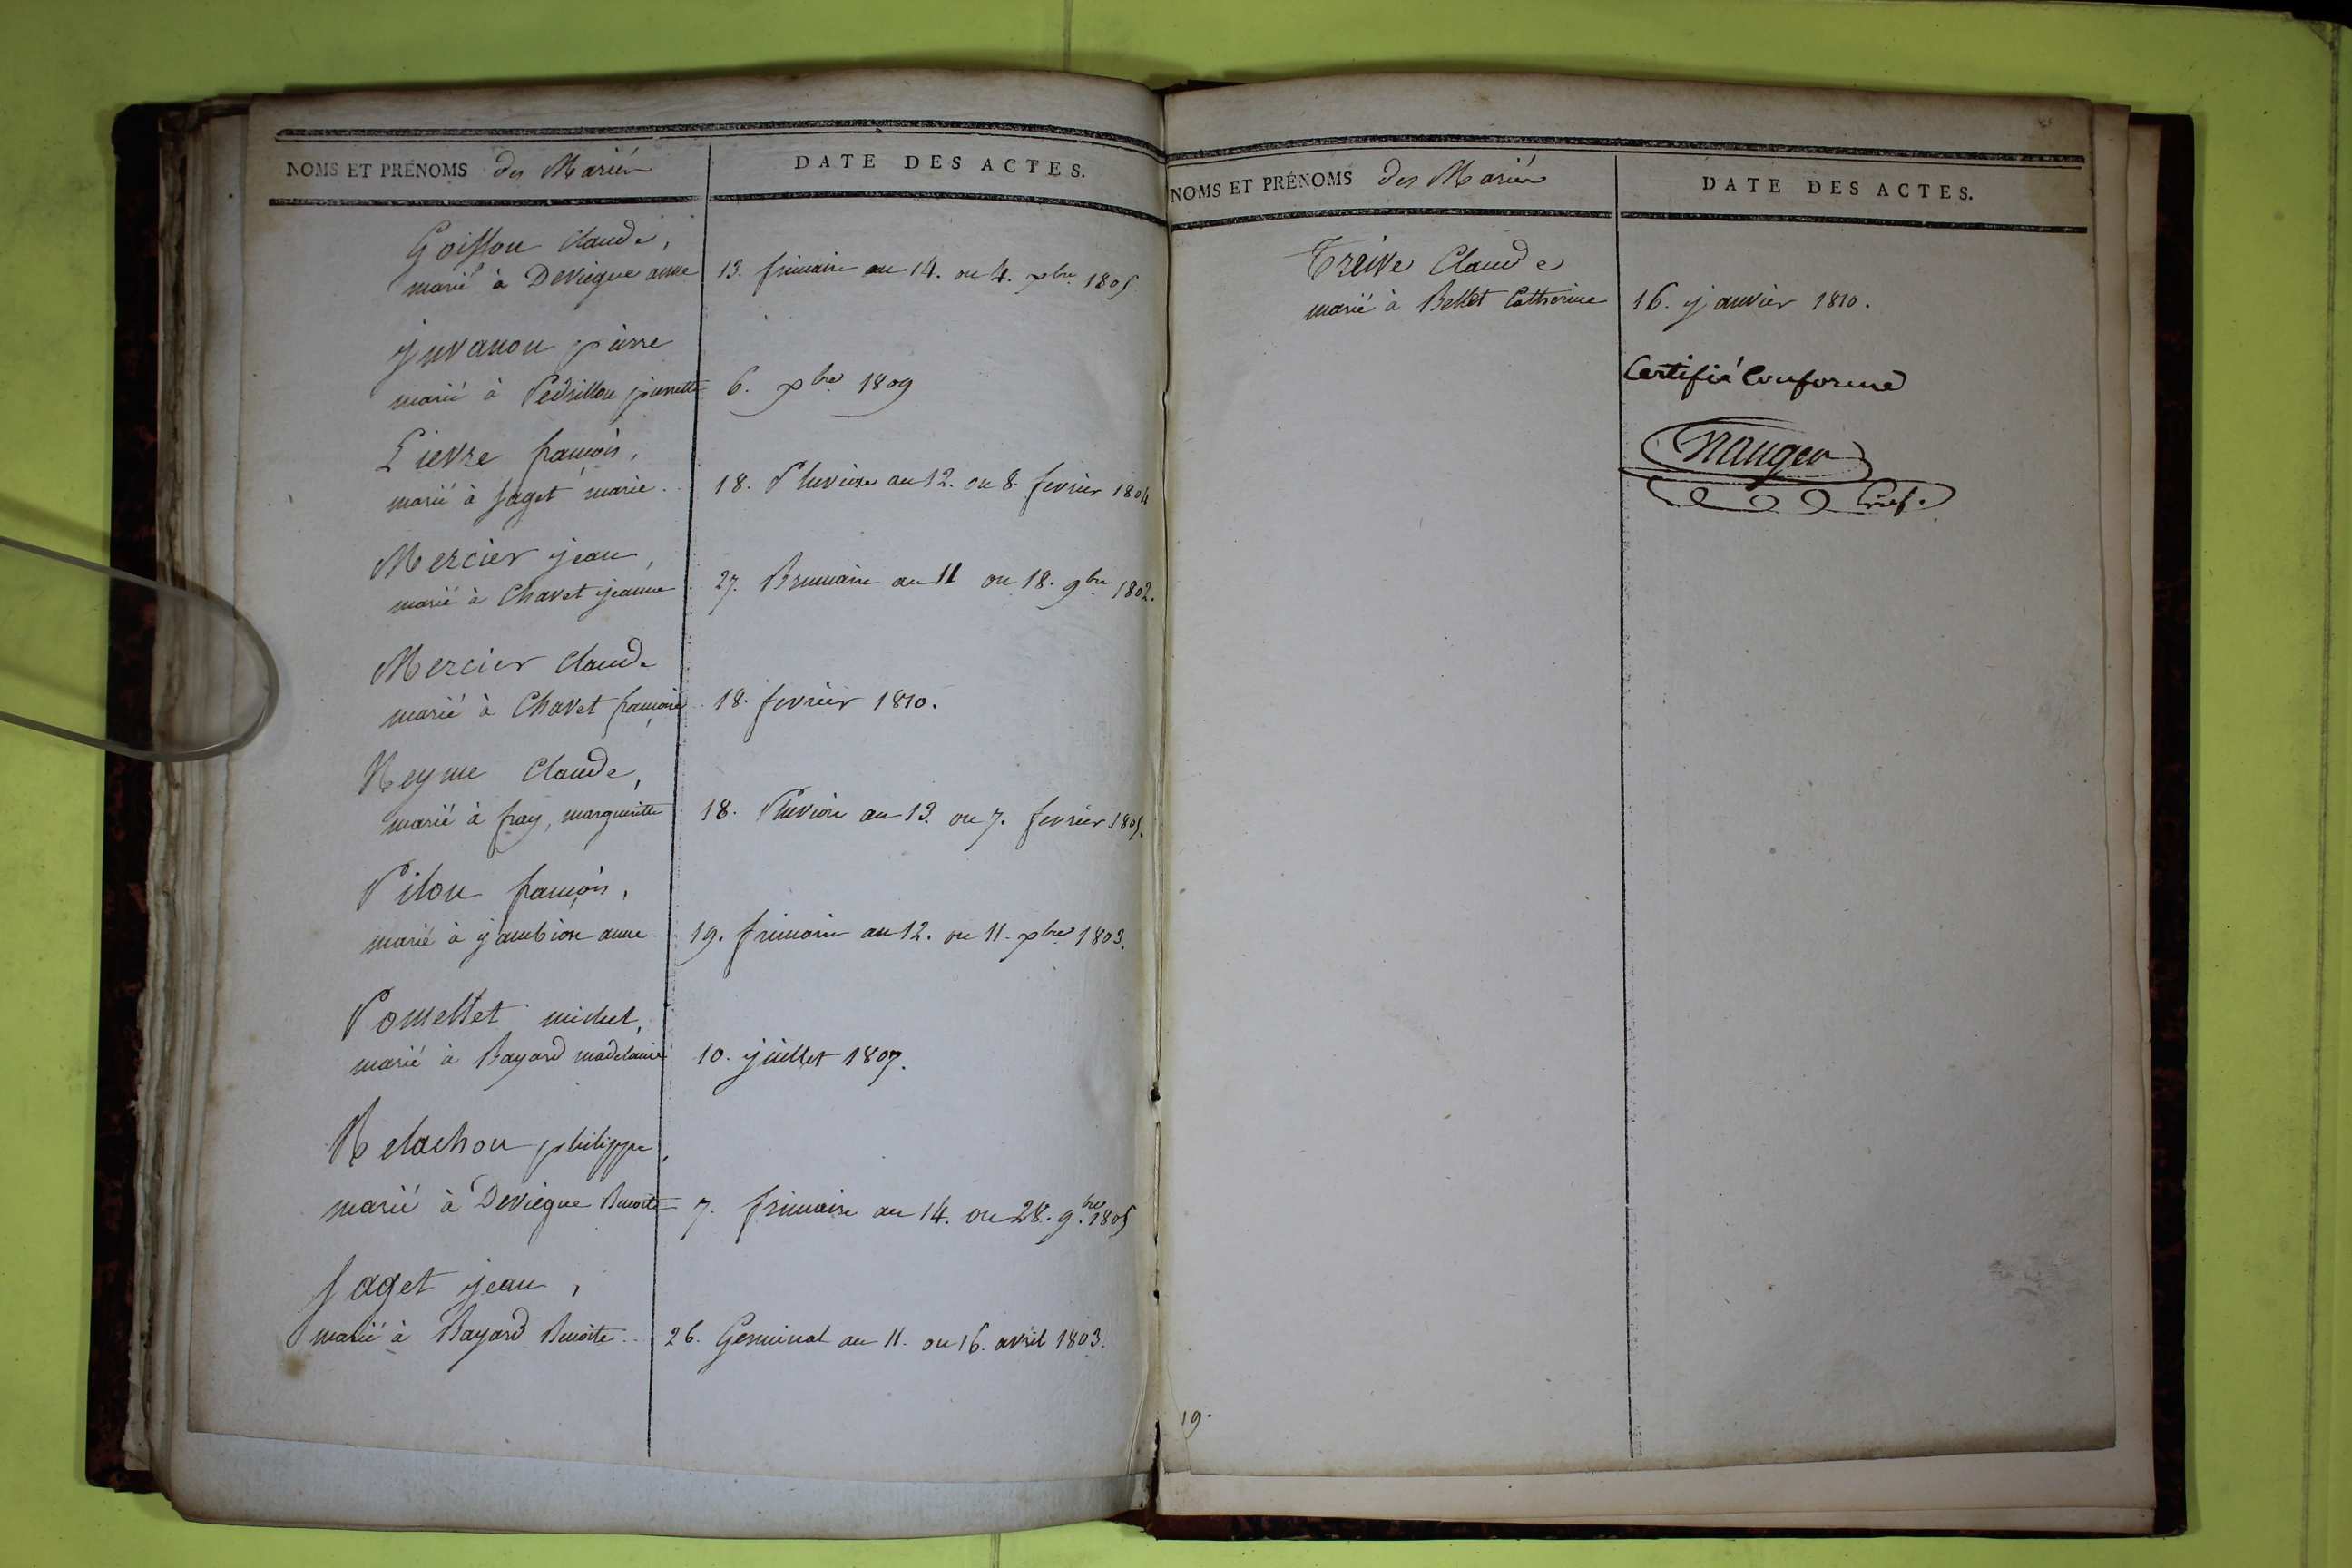 NOMS ET PRÉNOMS des Mariés
DATE DES ACTES.
Goisson Claude,
marié à Deviegue anne
13. frimaire an 14. ou 4. xbre 1805
juvanon pierre
marié à Pedrillon pierrette
6. xbre 1809
Lievre francois,
marié à Saget marie.
18. Pluviose an 12. ou 8. fevrier 1804
Mercier jean,
marié à Chavet jeanne
27. Brumaire an 11 ou 18. 9bre 1802.
Mercier Claude
marié à Chavet francoise
18. fevrier 1810.
Neyme Claude,
marié à fray, margueritte
18. Pluviose an 13. ou 7. fevrier 1805.
Pilon françois,
marié à jambion anne
19. frimaire an 12. ou 11. xbre 1803.
Pomettet michel,
marié à Bayard madelaine
10. juillet 1807.
Relachon philippe,
marié à Deviegue Benoite
7. frimaire an 14. ou 28. 9bre 1805
Saget jean,
marié à Bayard Benoite..
26. Germinal an 11. ou 16. avril 1803.
NOMS ET PRÉNOMS des Mariés
DATE DES ACTES.
Treive Claude
marié à Bellet Catherine
16. janvier 1810.
Certifié Conforme
Nauges
Gref.
19.